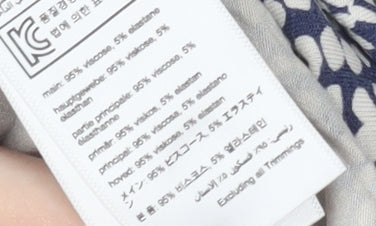 품질경영
법에 의한 표
main: 95% viscose, 5% elastane
hauptgewebe: 95% viskose, 5%
elasthan
partie principale: 95% viscose, 5%
élasthanne
primär: 95% viskos, 5% elastan
principal: 95% viscosa, 5% elastano
hoved: 95% viskose, 5% elastan
メイン: 95% ビスコース, 5% エラスティ
ン
본 품: 95% 비스코스, 5% 엘라스테인
Excluding all Trimmings